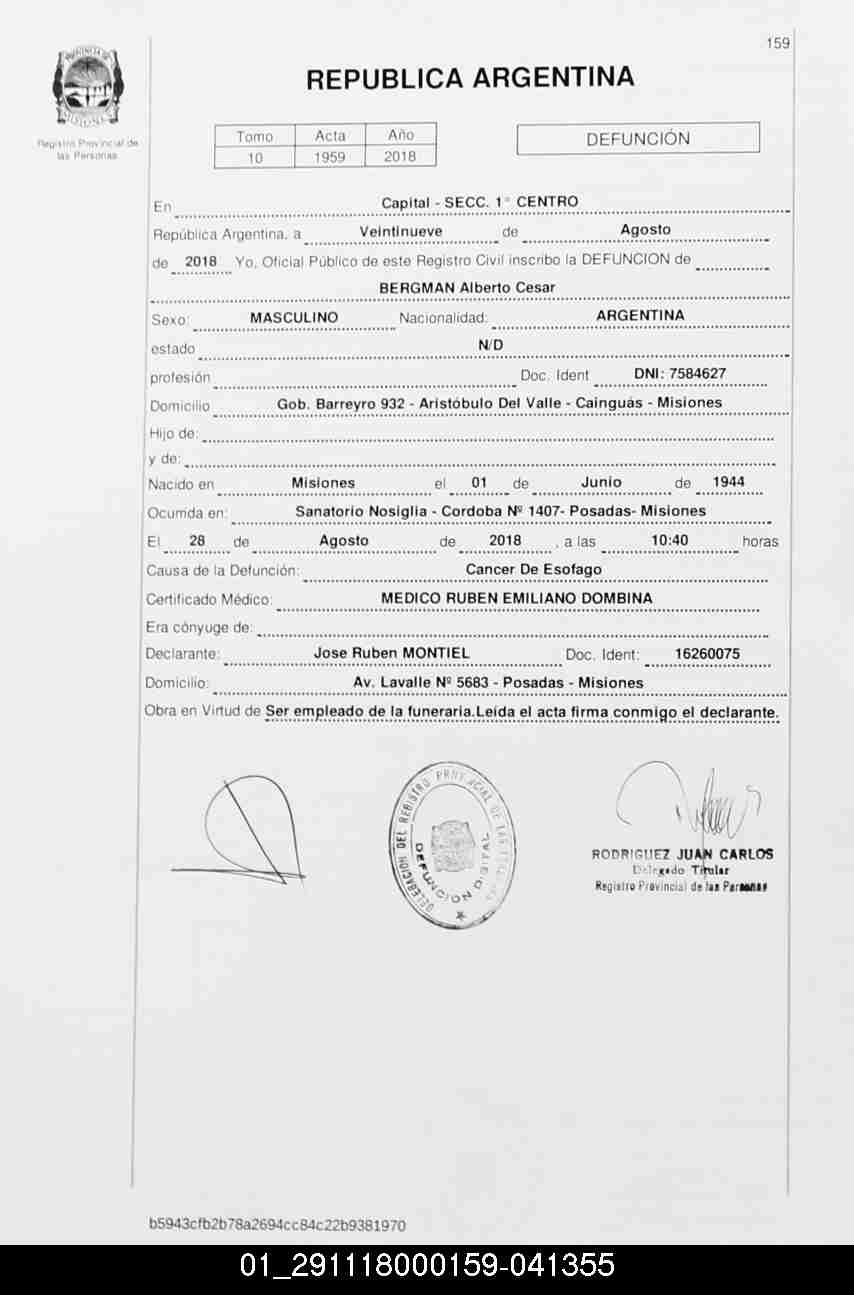 159
PROVINCIA DE
MISIONES
Registro Provincial de
las Personas
REPUBLICA ARGENTINA
Tomo Acta Año
10 1959 2018
DEFUNCIÓN
En Capital - SECC. 1° CENTRO
República Argentina, a Veintinueve de Agosto
de 2018 Yo, Oficial Público de este Registro Civil inscribo la DEFUNCION de
BERGMAN Alberto Cesar
Sexo: MASCULINO Nacionalidad: ARGENTINA
estado N/D
profesión Doc. Ident DNI: 7584627
Domicilio Gob. Barreyro 932 - Aristóbulo Del Valle - Cainguás - Misiones
Hijo de:
y de:
Nacido en Misiones el 01 de Junio de 1944
Ocurrida en: Sanatorio Nosiglia - Cordoba Nº 1407- Posadas- Misiones
El 28 de Agosto de 2018 , a las 10:40 horas
Causa de la Defunción: Cancer De Esofago
Certificado Médico: MEDICO RUBEN EMILIANO DOMBINA
Era cónyuge de:
Declarante: Jose Ruben MONTIEL Doc. Ident: 16260075
Domicilio: Av. Lavalle Nº 5683 - Posadas - Misiones
Obra en Virtud de Ser empleado de la funeraria.Leída el acta firma conmigo el declarante.
DELEGACION DEL REGISTRO PROVINCIAL DE LAS
DEFUNCION DIGITAL
RODRIGUEZ JUAN CARLOS
Delegado Titular
Registro Provincial de las Personas
b5943cfb2b78a2694cc84c22b9381970
01_291118000159-041355